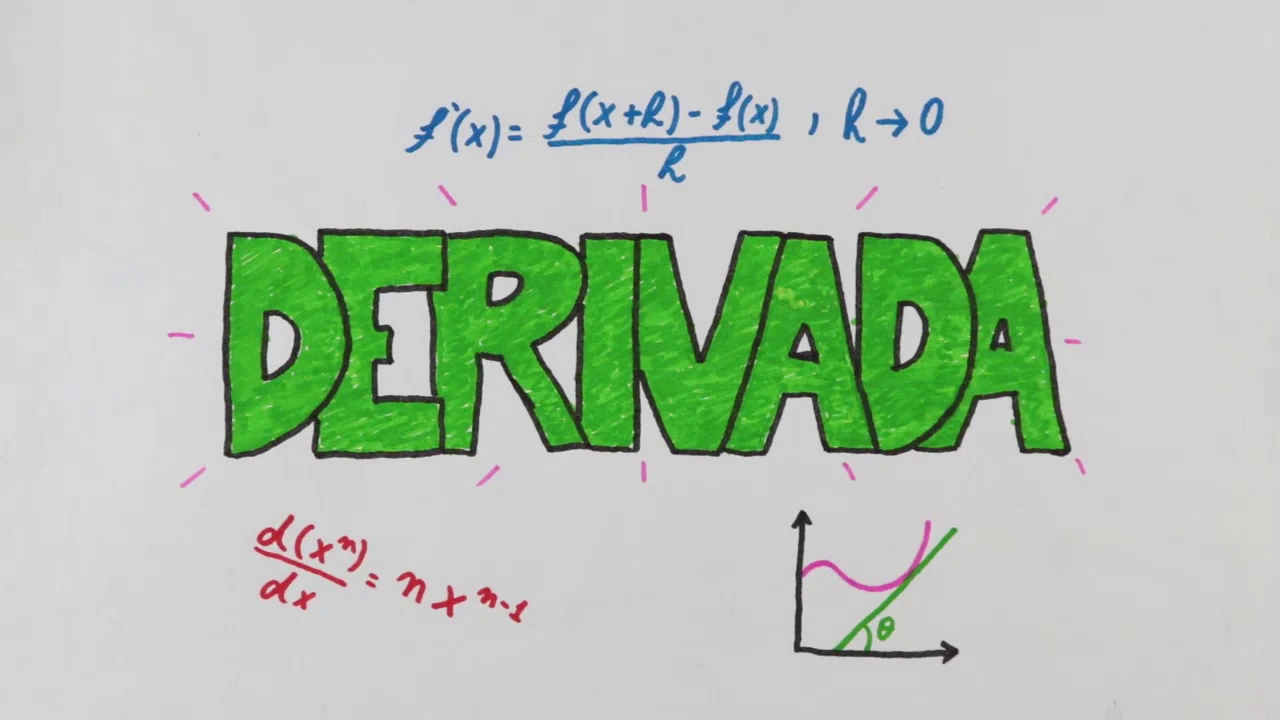 f'(x) = f(x+h) - f(x) / h , h → 0
DERIVADA
d(xⁿ)/dx = n x ⁿ⁻¹
θ